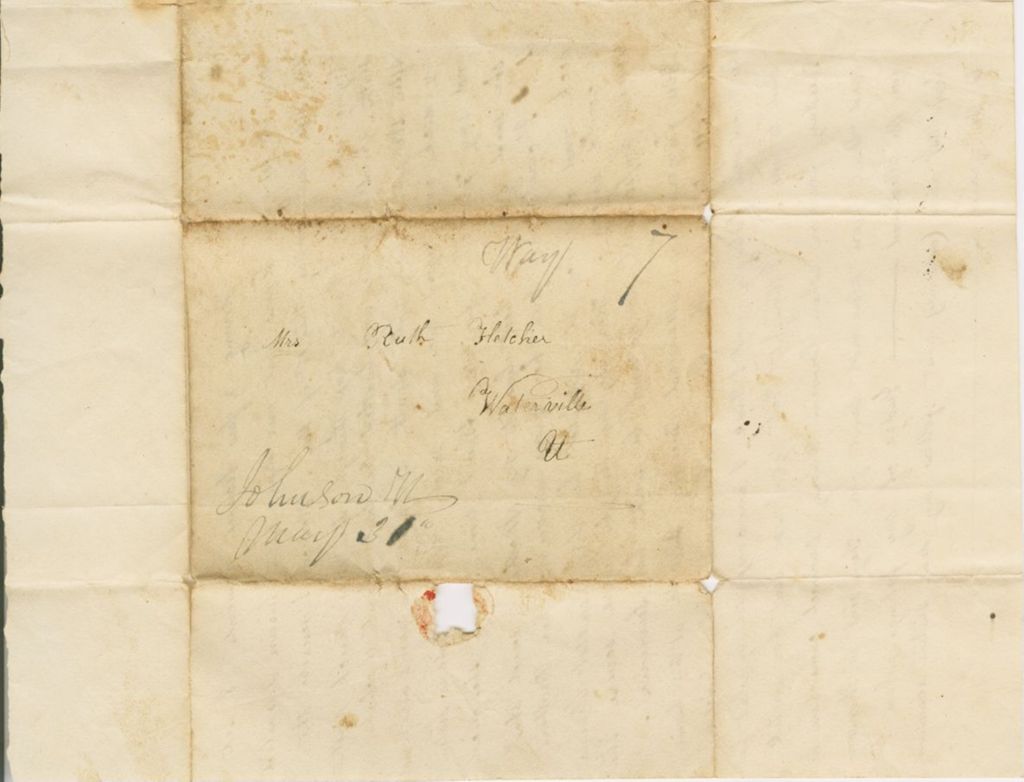 Way 7
Mrs Ruth Fletcher
Waterville
Vt
Johnson Vt
May 31